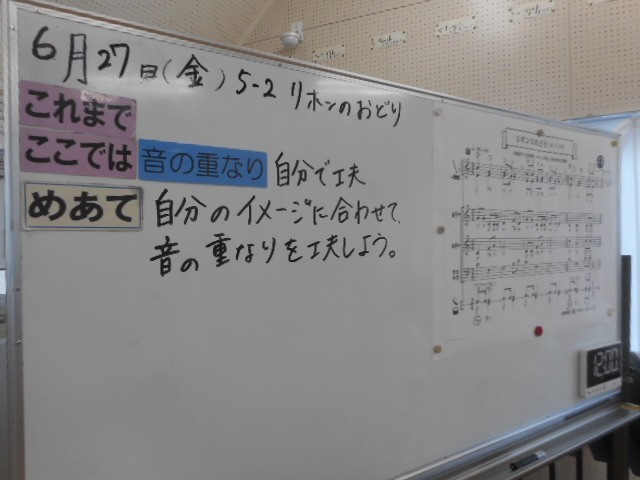 6月27日(金) 5-2 リホンのおどり
これまで
ここでは 音の重なり 自分で工夫
めあて 自分のイメージに合わせて、
音の重なりを工夫しよう。
12:00